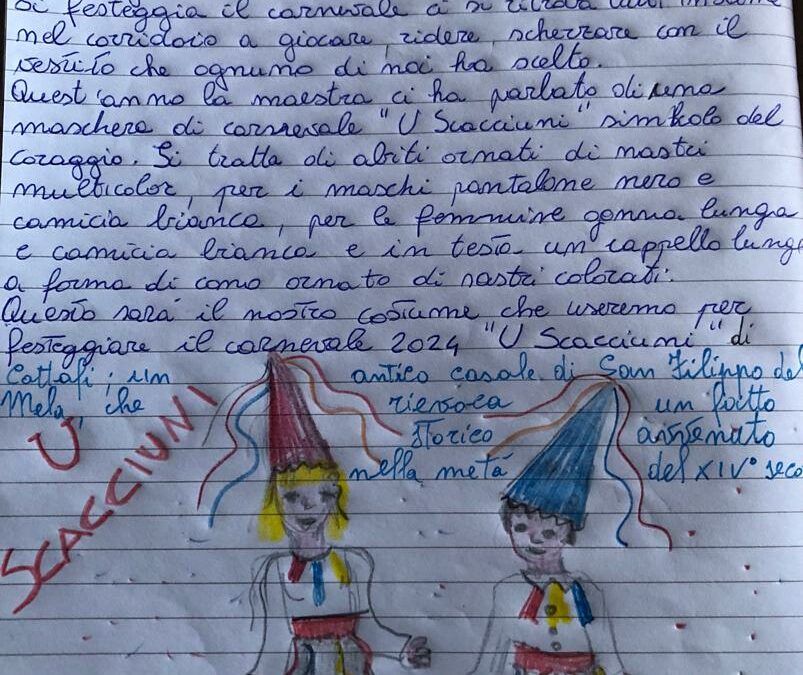 si festeggia il carnevale ci si ritrova tutti insieme
nel corridoio a giocare, ridere, scherzare con il
vestito che ognuno di noi ha scelto.
Quest'anno la maestra ci ha parlato di una
maschera di carnevale "U Scacciuni" simbolo del
coraggio. Si tratta di abiti ornati di nastri
multicolor, per i maschi pantalone nero e
camicia bianca, per le femmine gonna lunga
e camicia bianca e in testa un cappello lungo
a forma di cono ornato di nastri colorati.
Questo sarà il nostro costume che useremo per
festeggiare il carnevale 2024 "U Scacciuni" di
Cattafi; un antico casale di San Filippo del
Mela, che rievoca un fatto
storico avvenuto
nella metà del XIV° seco
U
SCACCIUNI